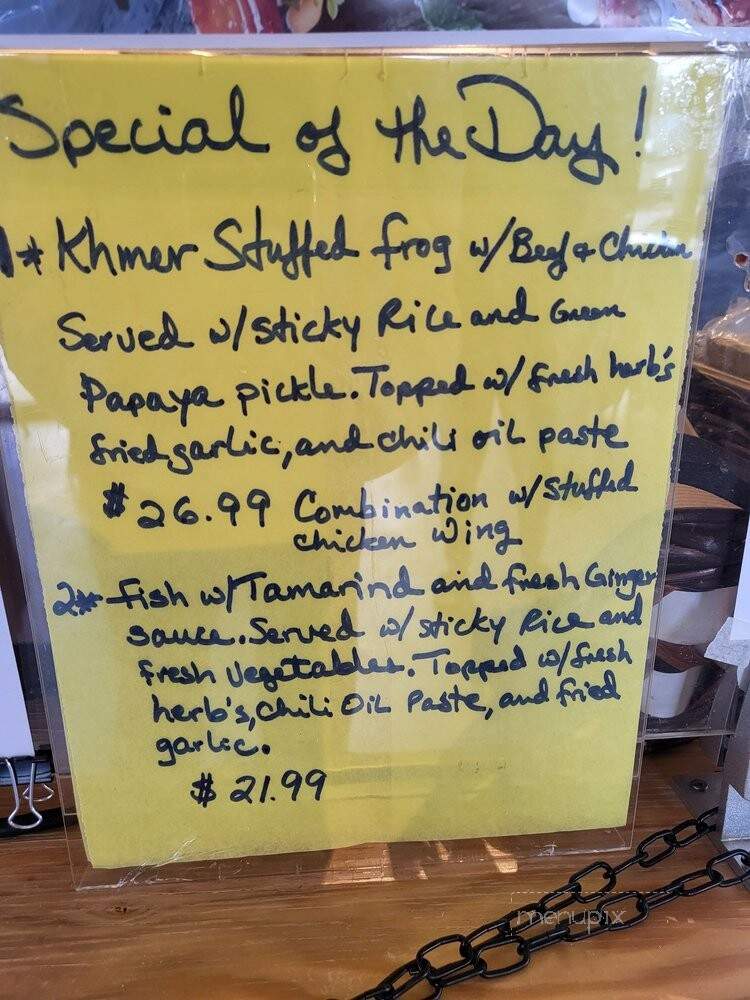 Special of the Day!
1* Khmer Stuffed frog w/ Beef & Chicken
Served w/ sticky Rice and Green
Papaya pickle. Topped w/ fresh herb's
fried garlic, and chili oil paste
$26.99 Combination w/ stuffed
chicken wing
2* fish w/ Tamarind and fresh Ginger
sauce. Served w/ sticky Rice and
fresh Vegetables. Topped w/ fresh
herb's, chili Oil Paste, and fried
garlic.
$21.99
menupix